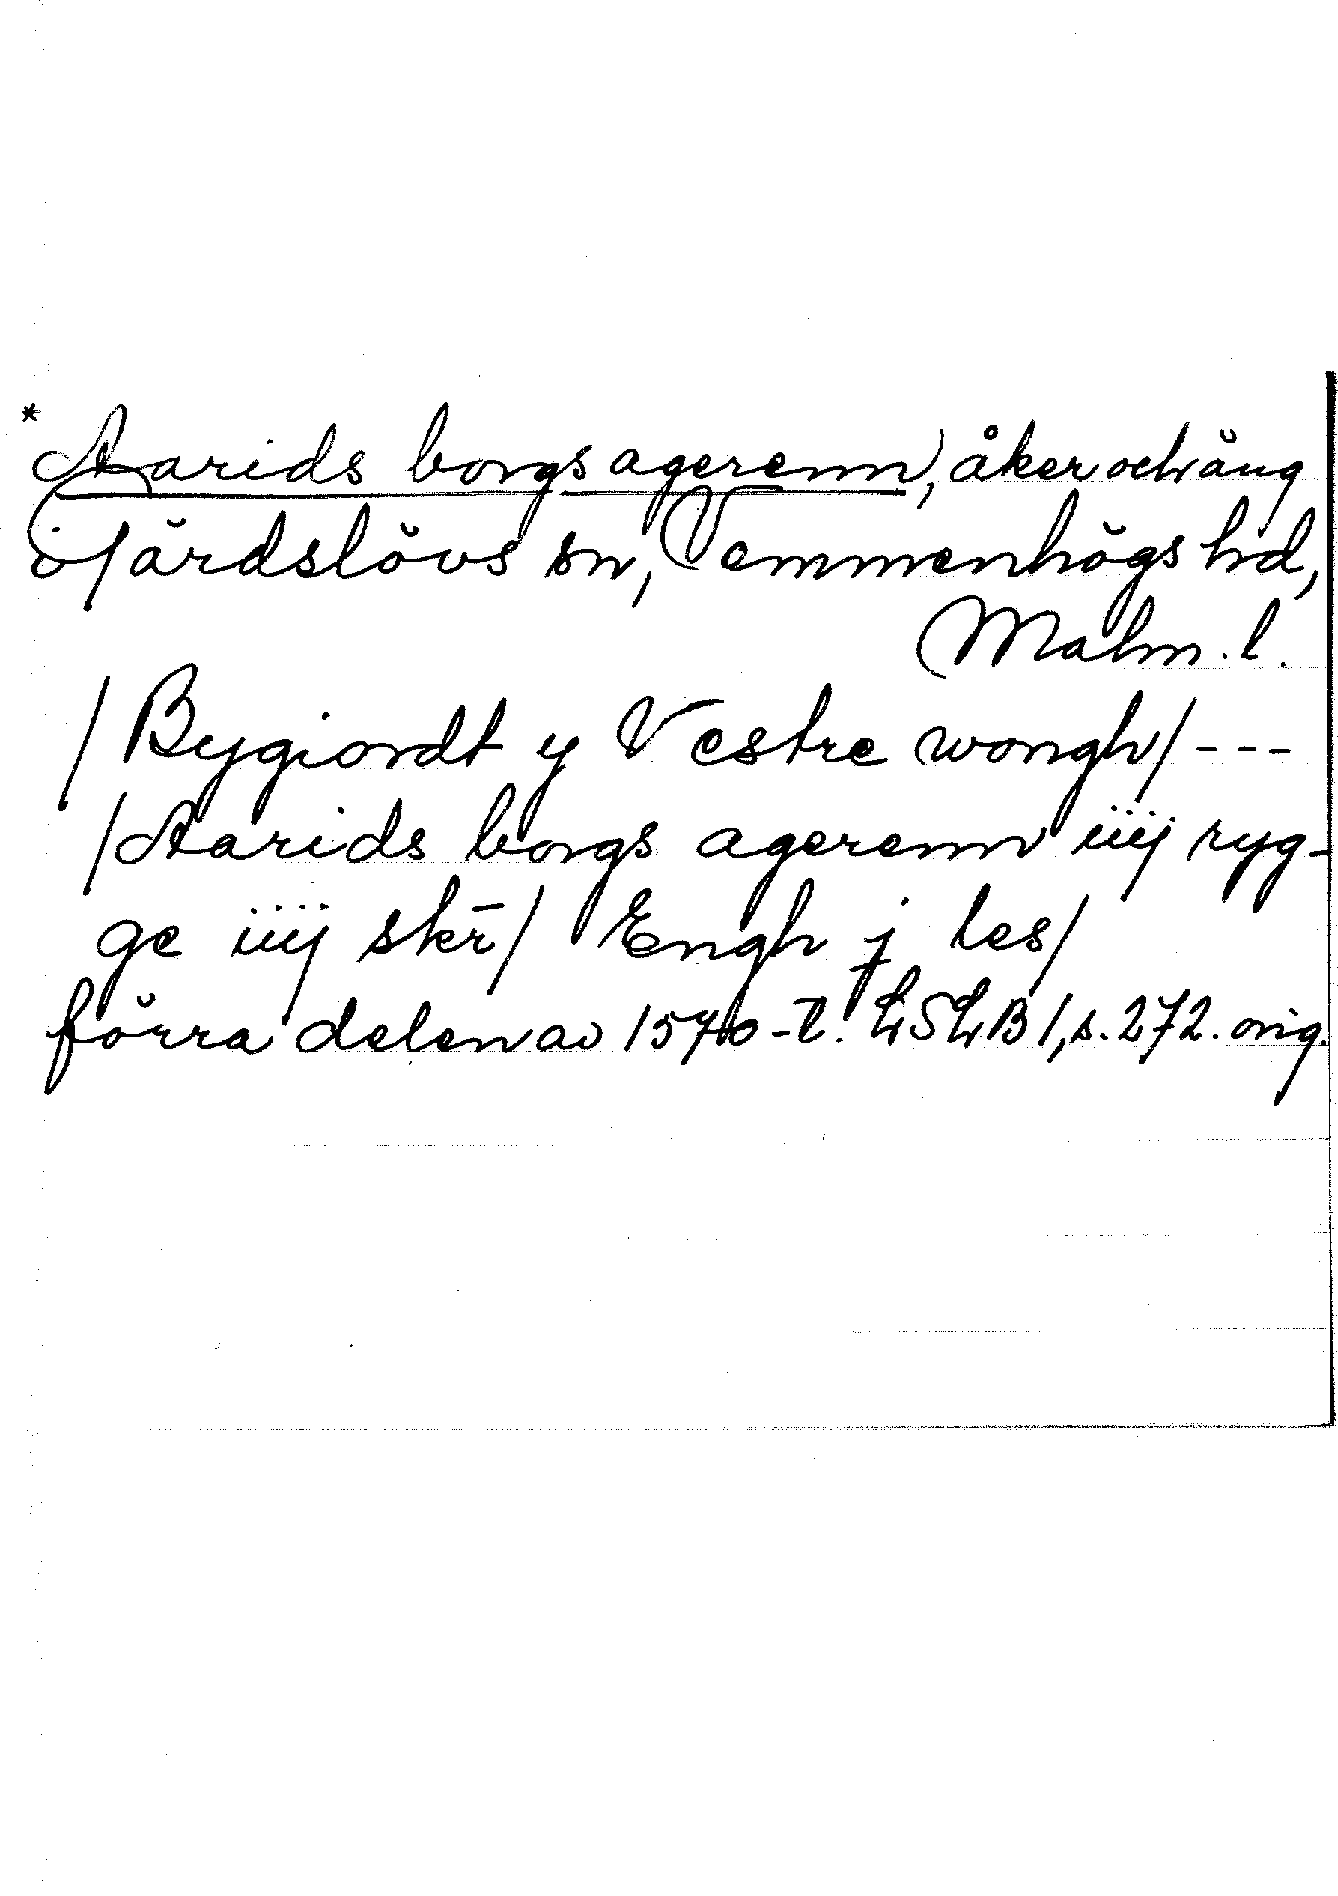 *Aarids borgs agerenn, åker och äng
i Järdslövs sn, Vemmenhögs hd,
Malm. l.
/ Bygiordt y Vestre wongh/ - - -
/Aarids borgs agerenn iiij ryg-
ge iiij skr̄/ Engh j les/
förra delen av 1570-t. LSLB 1, s. 272. orig.